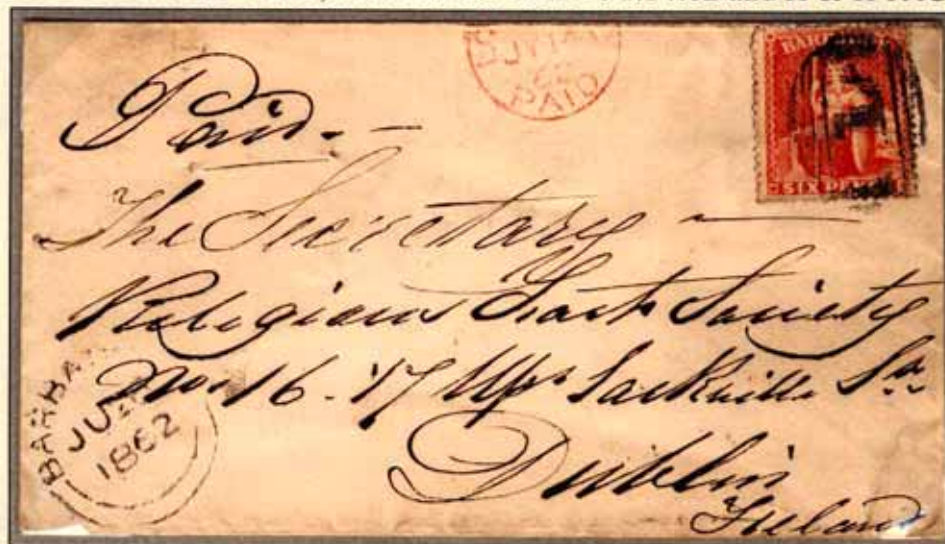 PAID
BARB
SIX P
Paid.-
The Secretary
Religious Tract Society
No. 16 . 17 Upr Sackville St.
Dublin
Ireland
BARBA
JU
1862